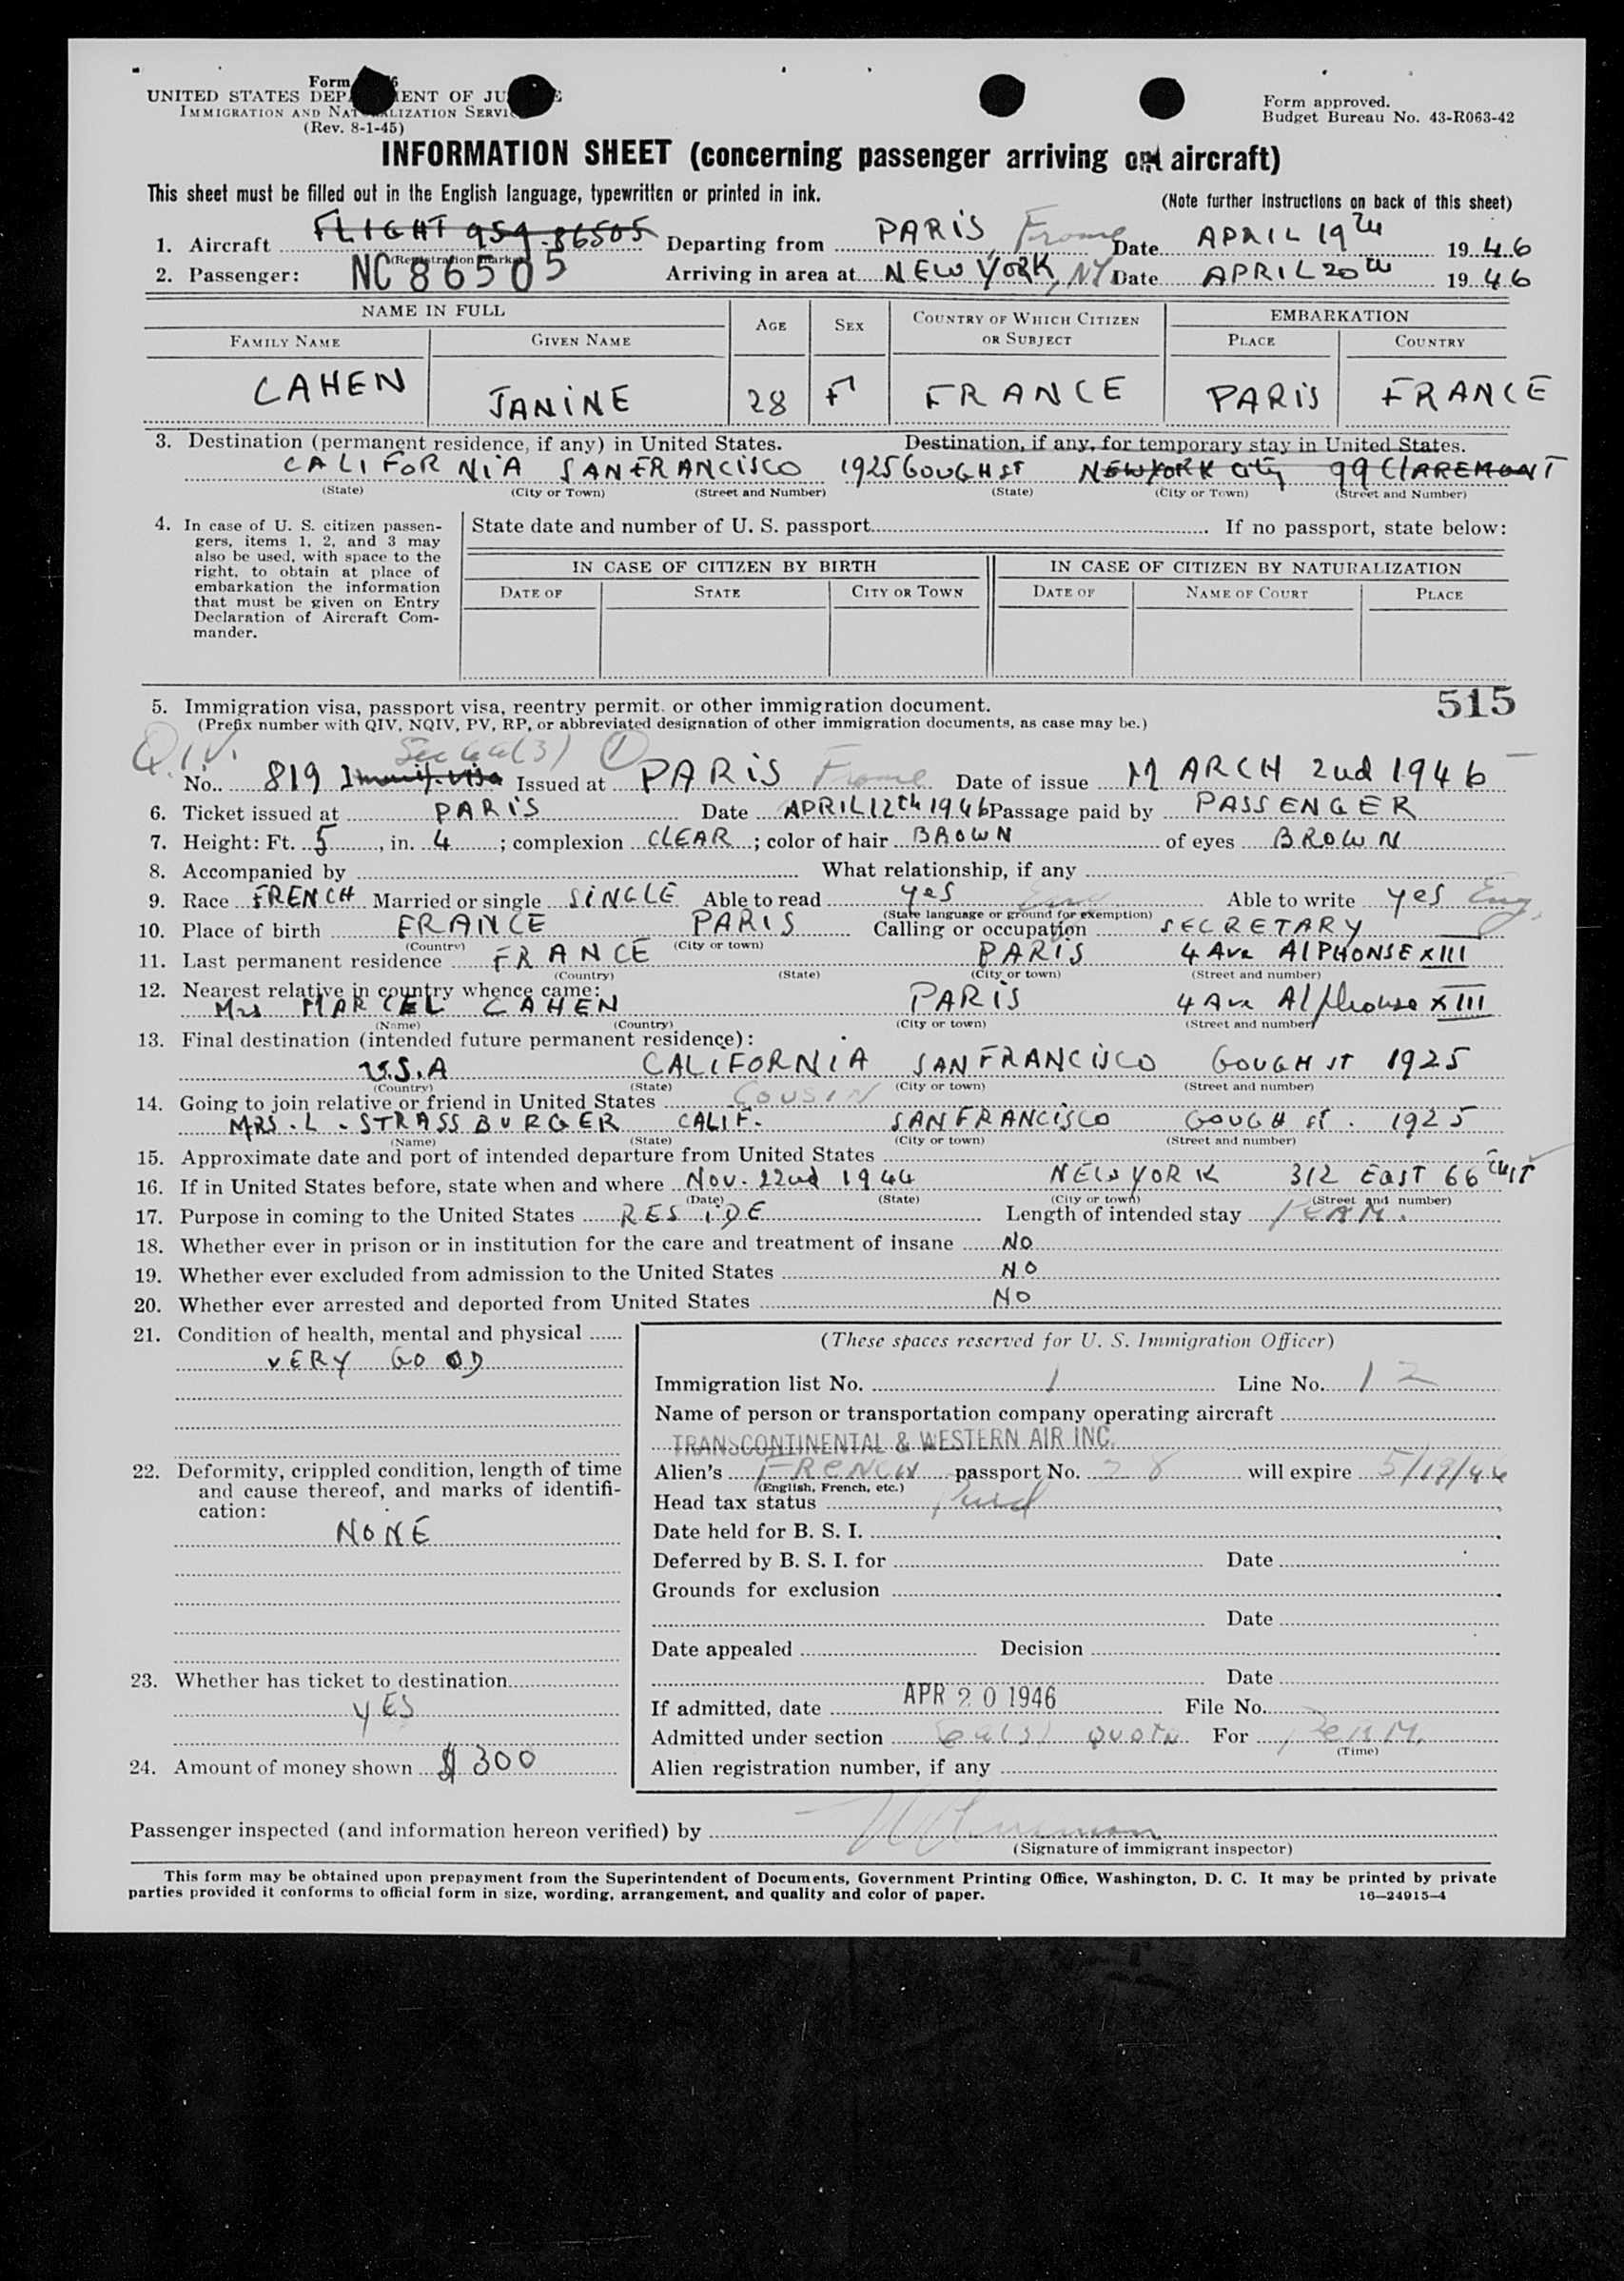 Form
UNITED STATES DEPARTMENT OF JUSTICE
IMMIGRATION AND NATURALIZATION SERVICE
(Rev. 8-1-45)
Form approved.
Budget Bureau No. 43-R063-42
INFORMATION SHEET (concerning passenger arriving on aircraft)
This sheet must be filled out in the English language, typewritten or printed in ink.
(Note further instructions on back of this sheet)
1. Aircraft FLIGHT 959-86505 Departing from PARIS, France Date APRIL 19th 1946
(Registration mark)
2. Passenger: NC 86505 Arriving in area at NEW YORK, NY Date APRIL 20th 1946
NAME IN FULL AGE SEX COUNTRY OF WHICH CITIZEN OR SUBJECT EMBARKATION
FAMILY NAME GIVEN NAME PLACE COUNTRY
CAHEN JANINE 28 F FRANCE PARIS FRANCE
3. Destination (permanent residence, if any) in United States. Destination, if any, for temporary stay in United States.
CALIFORNIA SAN FRANCISCO 1925 GOUGH ST NEW YORK City 99 CLAREMONT
(State) (City or Town) (Street and Number) (State) (City or Town) (Street and Number)
4. In case of U. S. citizen passen-
gers, items 1, 2, and 3 may
also be used, with space to the
right, to obtain at place of
embarkation the information
that must be given on Entry
Declaration of Aircraft Com-
mander.
State date and number of U. S. passport If no passport, state below:
IN CASE OF CITIZEN BY BIRTH IN CASE OF CITIZEN BY NATURALIZATION
DATE OF STATE CITY OR TOWN DATE OF NAME OF COURT PLACE
515
5. Immigration visa, passport visa, reentry permit. or other immigration document.
(Prefix number with QIV, NQIV, PV, RP, or abbreviated designation of other immigration documents, as case may be.)
Q.I.V. Sec 6a(3) 1
No. 819 Immig. visa Issued at PARIS France Date of issue MARCH 2nd 1946
6. Ticket issued at PARIS Date APRIL 12th 1946 Passage paid by PASSENGER
7. Height: Ft. 5, in. 4; complexion CLEAR; color of hair BROWN of eyes BROWN
8. Accompanied by What relationship, if any
9. Race FRENCH Married or single SINGLE Able to read yes Able to write yes Eng.
(State language or ground for exemption)
10. Place of birth FRANCE PARIS Calling or occupation SECRETARY
(Country) (City or town)
11. Last permanent residence FRANCE PARIS 4 Ave ALPHONSE XIII
(Country) (State) (City or town) (Street and number)
12. Nearest relative in country whence came:
Mrs MARCEL CAHEN PARIS 4 Ave Alphonse XIII
(Name) (Country) (City or town) (Street and number)
13. Final destination (intended future permanent residence):
U.S.A CALIFORNIA SAN FRANCISCO GOUGH ST 1925
(Country) (State) (City or town) (Street and number)
14. Going to join relative or friend in United States COUSIN
MRS. L. STRASSBURGER CALIF. SAN FRANCISCO GOUGH ST. 1925
(Name) (State) (City or town) (Street and number)
15. Approximate date and port of intended departure from United States
16. If in United States before, state when and where Nov. 22nd 1944 NEW YORK 312 EAST 66 th ST
(Date) (State) (City or town) (Street and number)
17. Purpose in coming to the United States RESIDE Length of intended stay PERM.
18. Whether ever in prison or in institution for the care and treatment of insane NO
19. Whether ever excluded from admission to the United States NO
20. Whether ever arrested and deported from United States NO
21. Condition of health, mental and physical
VERY GOOD
22. Deformity, crippled condition, length of time
and cause thereof, and marks of identifi-
cation:
NONE
23. Whether has ticket to destination
YES
24. Amount of money shown $ 300
(These spaces reserved for U. S. Immigration Officer)
Immigration list No. 1 Line No. 12
Name of person or transportation company operating aircraft
TRANSCONTINENTAL & WESTERN AIR INC.
Alien's FRENCH passport No. 28 will expire 5/19/46
(English, French, etc.)
Head tax status Paid
Date held for B. S. I.
Deferred by B. S. I. for Date
Grounds for exclusion
Date
Date appealed Decision
Date
If admitted, date APR 20 1946 File No.
Admitted under section 6a(3) QUOTA For PERM.
(Time)
Alien registration number, if any
Passenger inspected (and information hereon verified) by
(Signature of immigrant inspector)
This form may be obtained upon prepayment from the Superintendent of Documents, Government Printing Office, Washington, D. C. It may be printed by private
parties provided it conforms to official form in size, wording, arrangement, and quality and color of paper. 16—24915-4